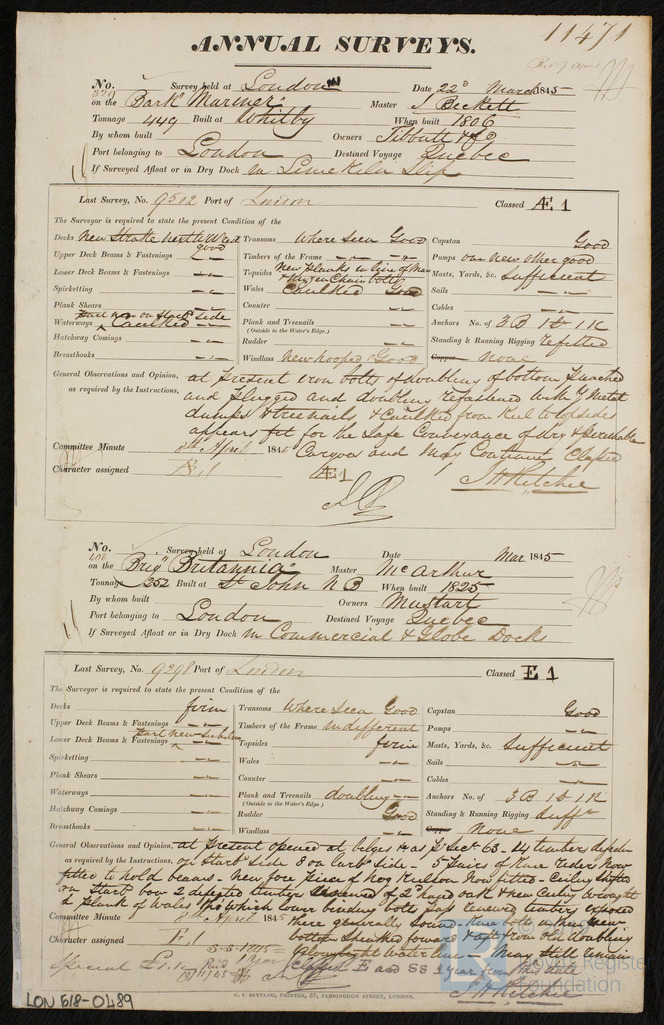 11471
ANNUAL SURVEYS.
No. 320 Survey held at London Date 22d March 1845
on the Bark "Mariner" Master J Beckett
Tonnage 449 Built at Whitby When built 1806
By whom built Owners Tibbutt & Co
Port belonging to London Destined Voyage Quebec
If Surveyed Afloat or in Dry Dock in Lime Kiln Slip
Last Survey, No. 9502 Port of London Classed Æ 1
The Surveyor is required to state the present Condition of the
Decks New Strake North West good Transoms Where Seen Good Capstan Good
Upper Deck Beams & Fastenings Timbers of the Frame Pumps one new other good
Lower Deck Beams & Fastenings Topsides New planks in line of Main & Mizen Chain bolts Masts, Yards, &c. Sufficient
Spirketting Wales Caulked Good Sails
Plank Shears Counter Cables
Waterways Part new on Starbd side Caulked Plank and Treenails Anchors No. of 3 B 1 S 1 K
(Outside to the Water's Edge.)
Hatchway Comings Rudder Standing & Running Rigging refitted
Breasthooks Windlass New hooped Good Copper none
General Observations and Opinion, at present iron bolts of doubling of bottom punched
as required by the Instructions, and plugged and doubling refastened with Y Metal
dumps & treenails, & Caulked from Keel to topsides
appears fit for the Safe Conveyance of dry & perishable
Committee Minute 8th April 1845 Cargoes and May Continue Classed
Character assigned Æ 1 Æ 1
J H Ritchie
No. 408 Survey held at London Date Mar 1845
on the Brig "Britannia" Master McArthur
Tonnage 252 Built at St John N B When built 1825
By whom built Owners Mustart
Port belonging to London Destined Voyage Quebec
If Surveyed Afloat or in Dry Dock in Commercial & Globe Dock
Last Survey, No. 9298 Port of London Classed E 1
The Surveyor is required to state the present Condition of the
Decks firm Transoms Where Seen Good Capstan Good
Upper Deck Beams & Fastenings Timbers of the Frame indifferent Pumps
Lower Deck Beams & Fastenings Part new Topsides firm Masts, Yards, &c. Sufficient
Spirketting Wales Sails
Plank Shears Counter Cables
Waterways Plank and Treenails doubling Anchors No. of 3 B 1 S 1 K
(Outside to the Water's Edge.)
Hatchway Comings Rudder Good Standing & Running Rigging Sufft
Breasthooks Windlass Copper none
General Observations and Opinion, at present opened at bilges as Sect 63 - 14 timbers defective
as required by the Instructions, on Starb side 8 on larb side - 5 pairs of Knee riders Now
fitted to hold beams - New fore piece of Keelson Now fitted - Ceiling Shifted
on Starb bow 2 defected timbers of 2d hand oak & new Ceiling brought
& plank of Wales which lower binding bolts pass timbers exposed
Committee Minute 8th April 1845 there generally Sound
Character assigned E 1 bottom forward & aft from old doubling
S.S. 1845 1 Year water line - May Still remain
Special £1.1. Paid Classed E and SS 1 year from this date
J H Ritchie
C. F. SEYFANG, PRINTER, 57, FARRINGDON STREET, LONDON.
LON 618-0489
Lloyd's Register
Foundation